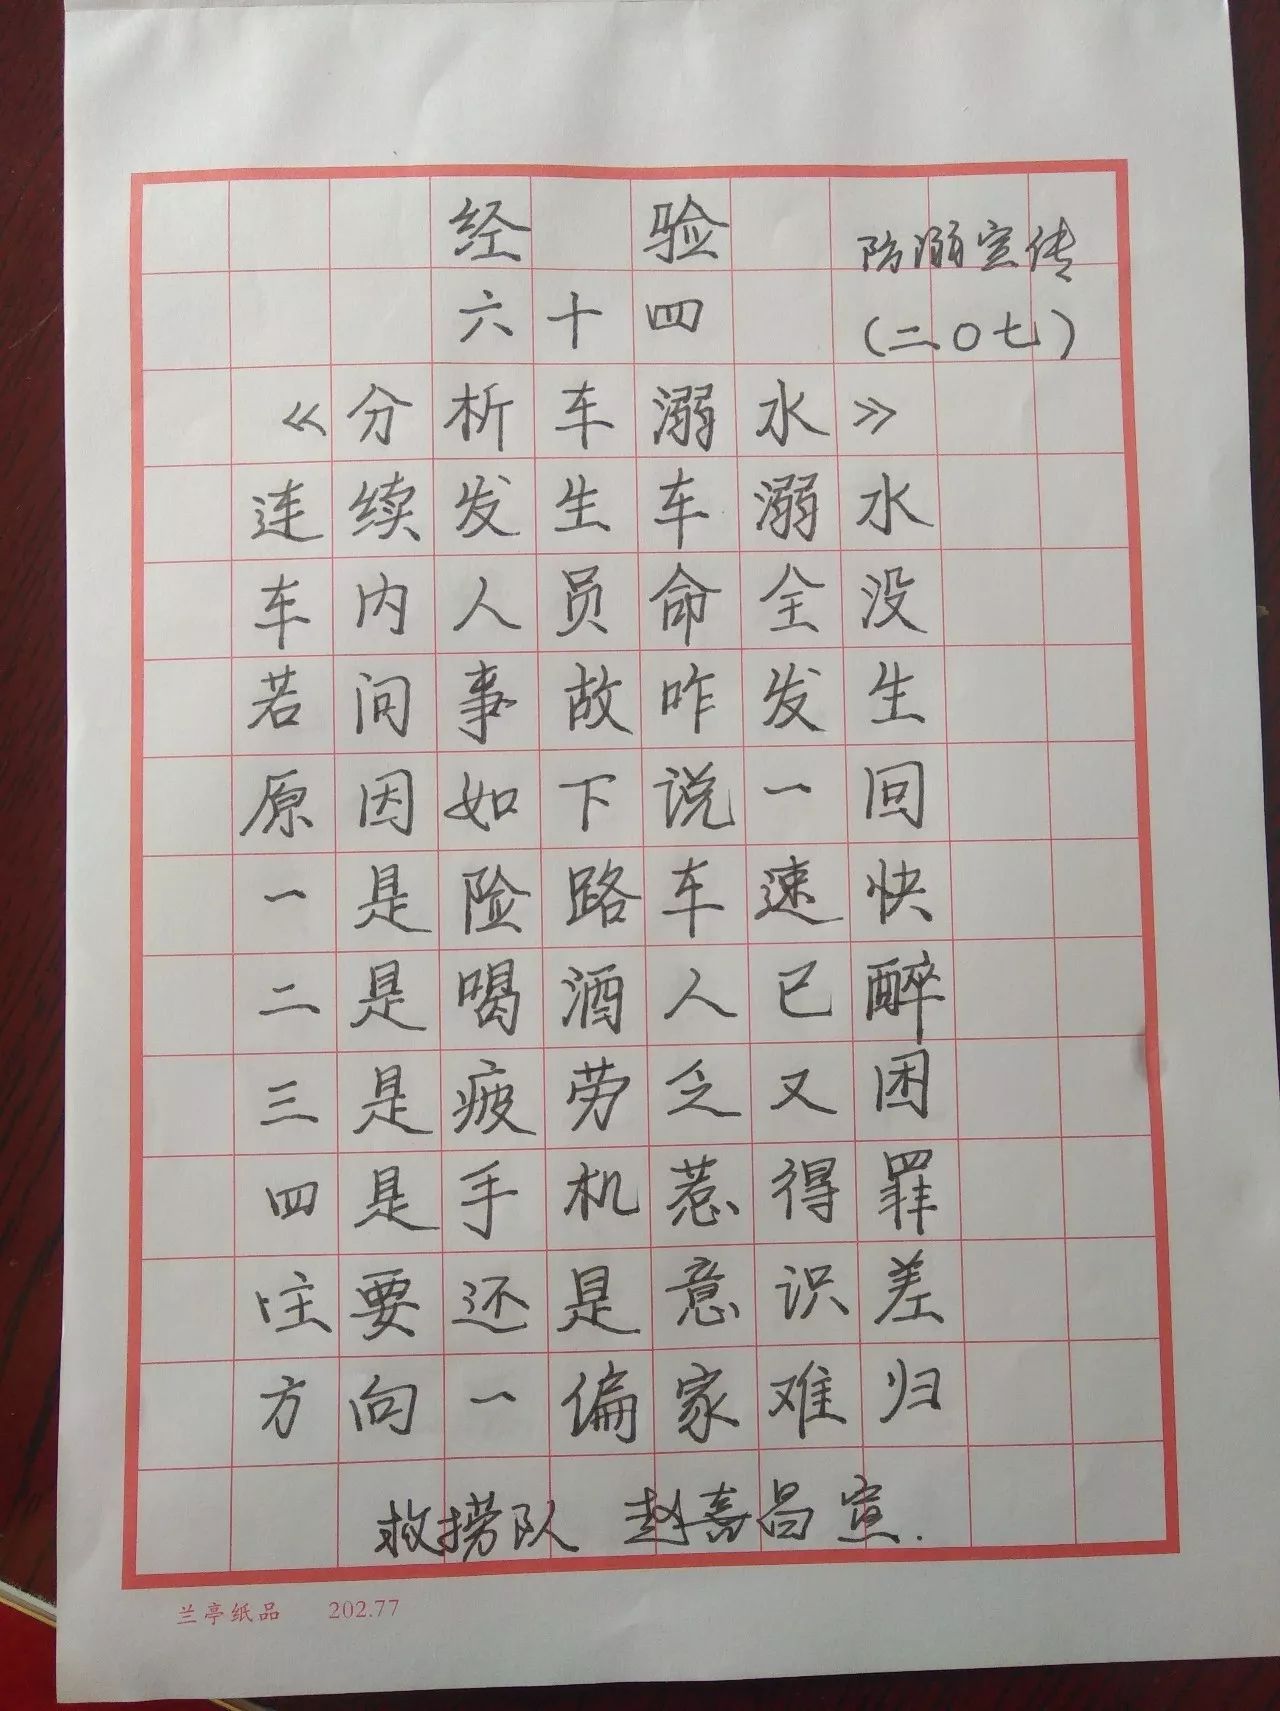 经 验
防溺宣传
六十四
（二〇七）
《分析车溺水》
连续发生车溺水
车内人员命全没
若问事故咋发生
原因如下说一回
一是险路车速快
二是喝酒人已醉
三是疲劳乏又困
四是手机惹得罪
主要还是意识差
方向一偏家难归
救捞队 赵喜昌宣.
兰亭纸品 202.77